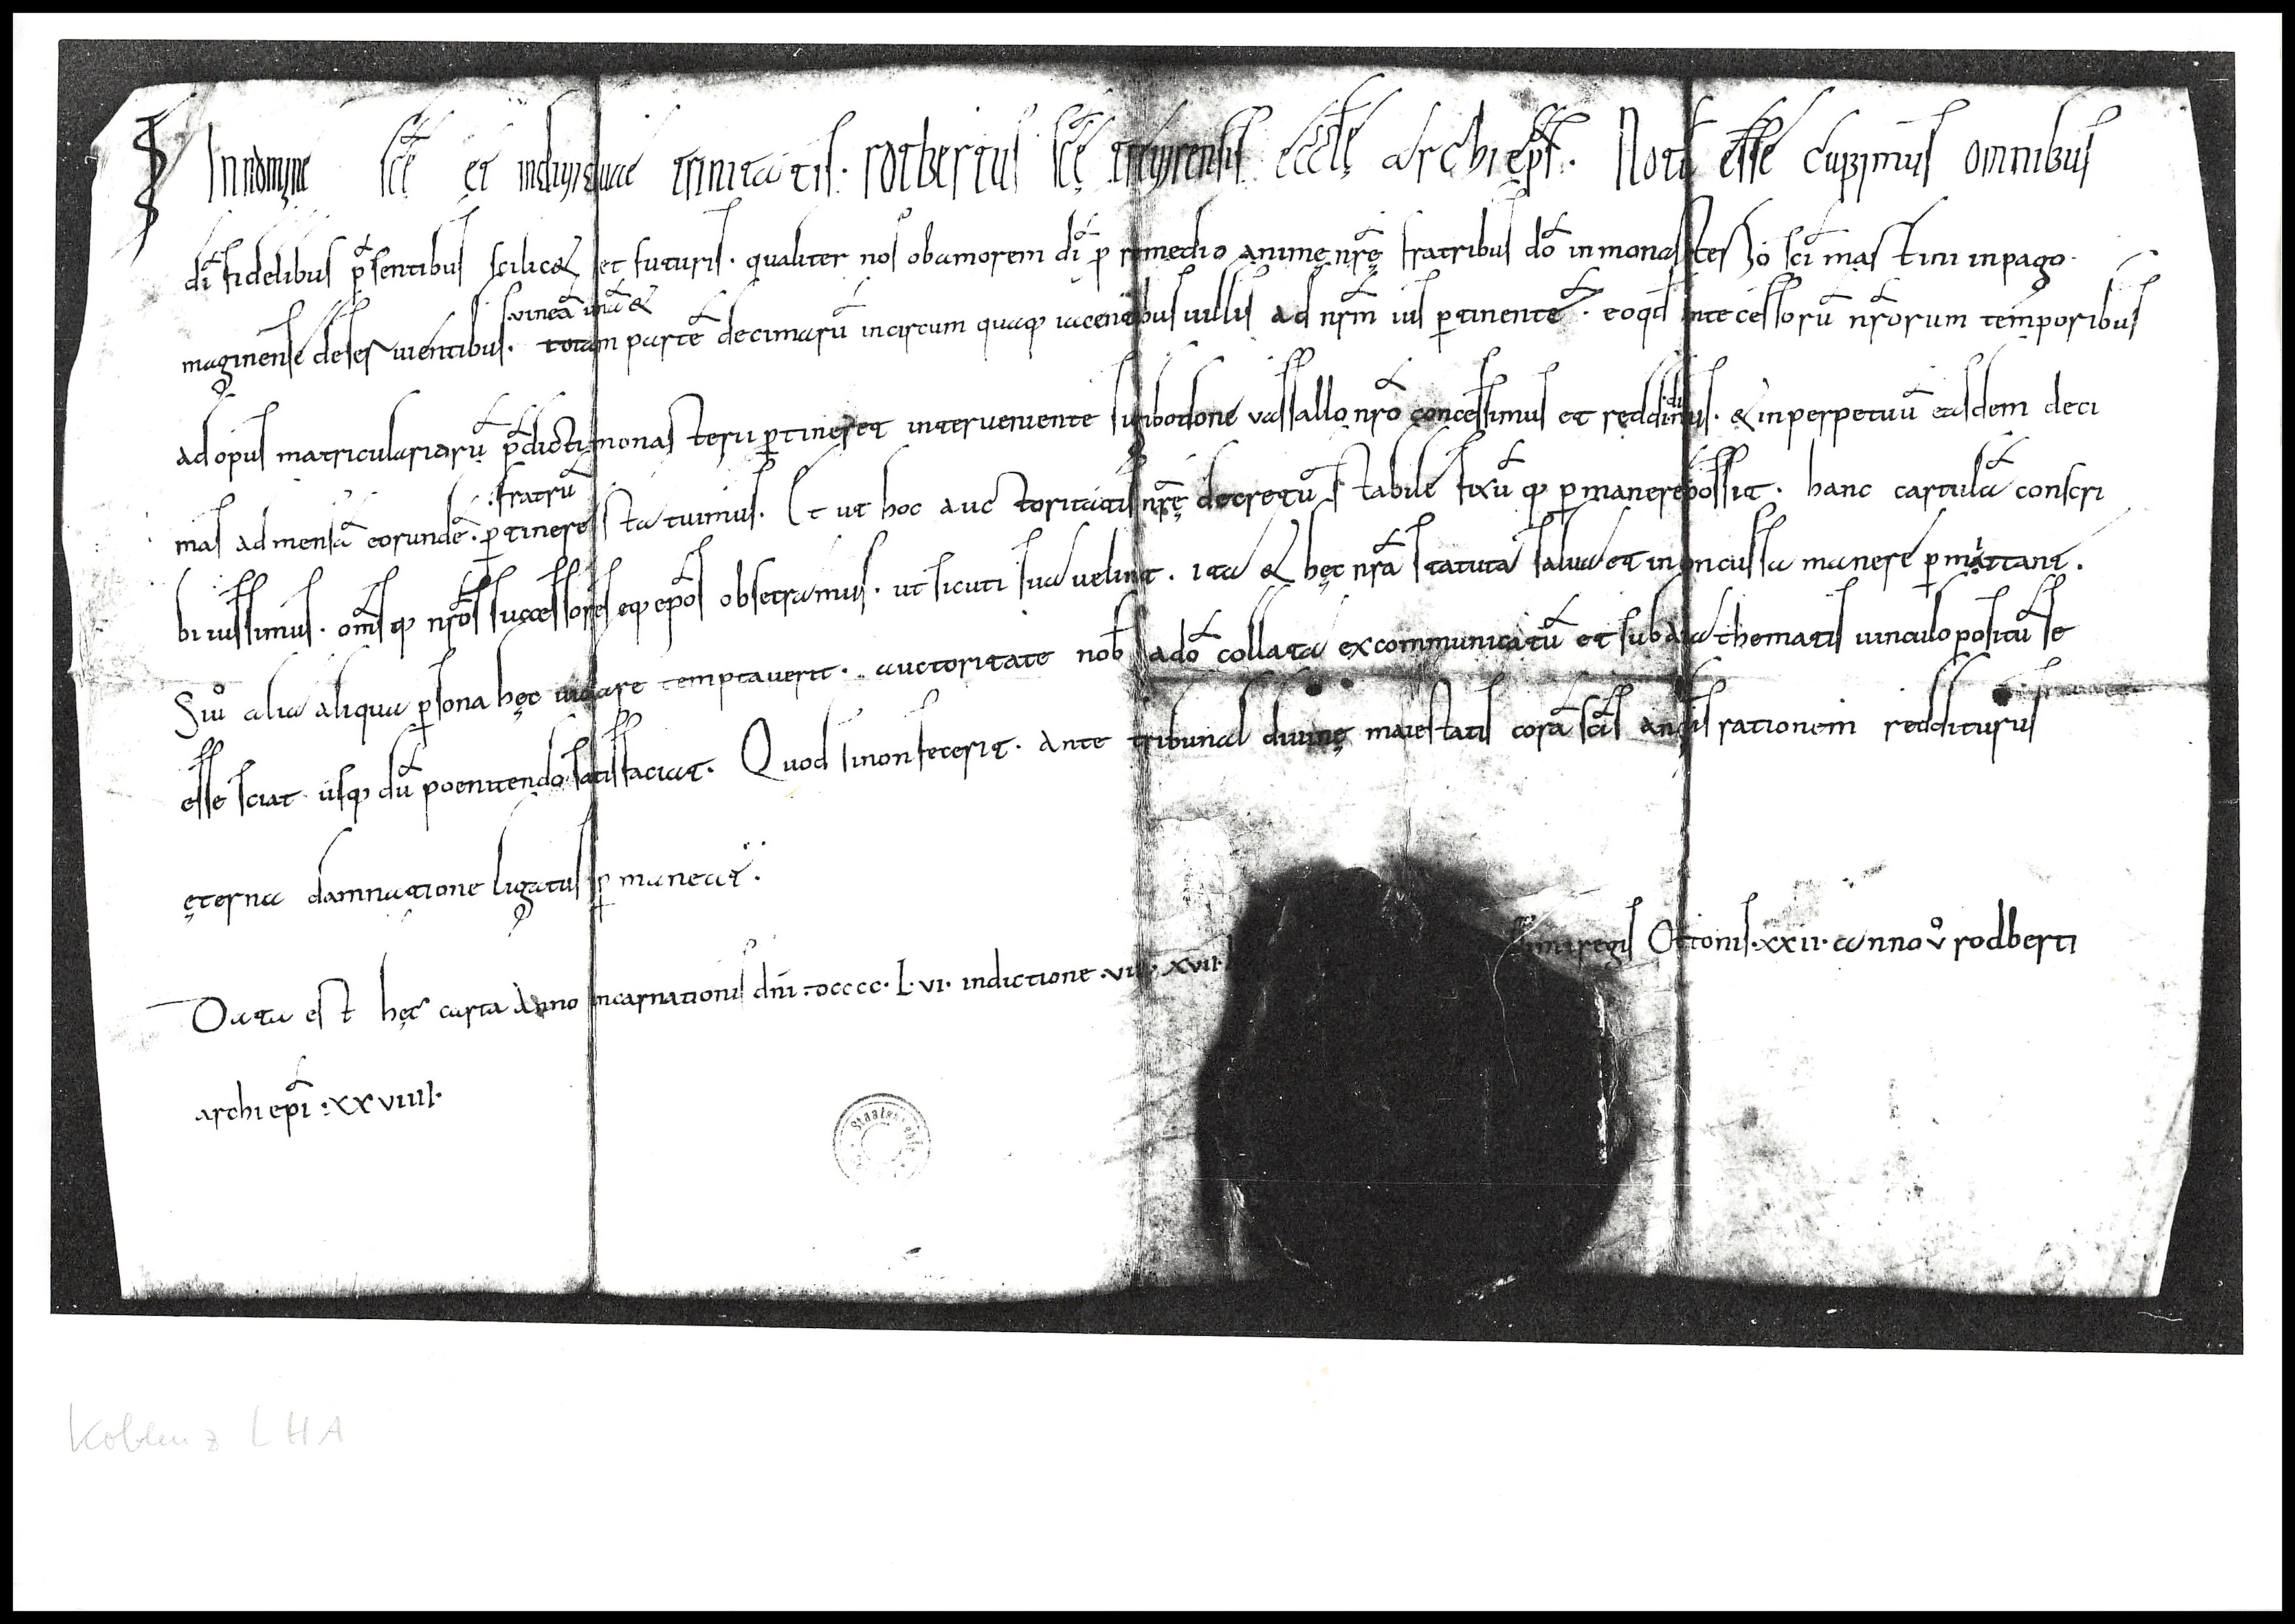 In nomine scē et indiuiduae trinitatis. rotbertus scę treuirensis ecclę archiepſ. Notū esse cupimus omnibus
dī fidelibus p̄sentibus scilic& et futuris. qualiter nos ob amorem dī p remedio animę nrę fratribus dō in monasterio scī martini in pago
:uineā unā &
maginense deseruientibus. totam partē decimarū in circum quaq; iacentibus uillis ad nrm ius ptinentē. eo qd antecessorū nrorum temporibus
ad opus matriculariorū p̄dicti monasterii ptineret interueniente suibodone uassallo nro concessimus et reddidimus. & in perpetuū easdem deci
:fratrū
mas ad mensā eorundē. ptinere statuimus. Et ut hoc auctoritatis nrę decretū stabile fixū q; pmanere possit. hanc cartulā conscri
bi iussimus. oms q; nros successores eq; epos obsecramus. ut sicuti sua uelint. ita & hęc nra statuta salua et inconcussa manere pmittant.
Siū alia aliqua psona hęc uiolare temptauerit. auctoritate nob a dō collata excommunicatū et sub anathematis uinculo positū se
esse sciat usq; dū poenitendo satisfaciat. Quod si non fecerit. ante tribunal diuinę maiestatis corā scis anglis rationem redditurus
ęterna damnatione ligatus pmaneat.
Data est hęc carta anno incarnationis dni. dcccc. L. vi. indictione. xvii. regis Ottonis. xxii. anno ů rodberti
archiepi. xxviiii.
Staatsarchiv
Koblenz LHA